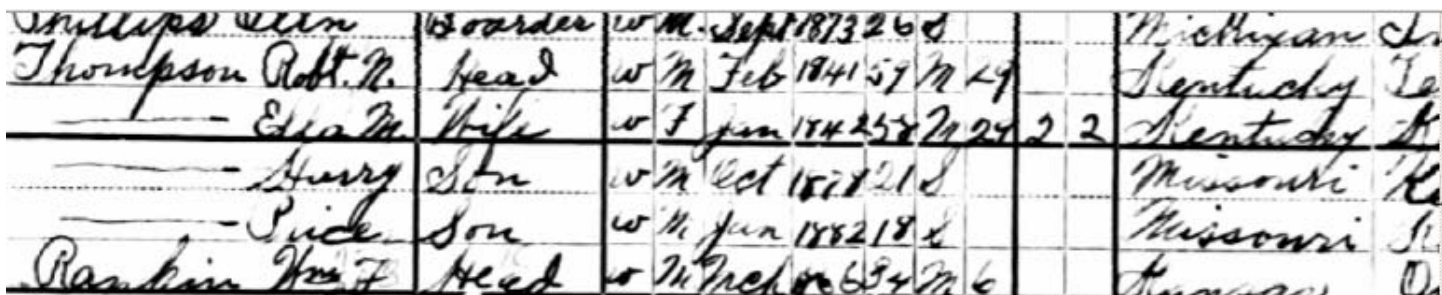 Phillips Boarder W M. Sept 1873 26 S Michigan
Thompson Robt. N. Head W M Feb 1841 59 M 29 Kentucky Te
Ella M Wife W F Jan 1842 58 M 29 2 2 Kentucky K
Harry Son W M Oct 1878 21 S Missouri Ke
Price Son W M Jan 1882 18 S Missouri K
Rankin Wm F Head W M Mch 34 M 6 Kansas